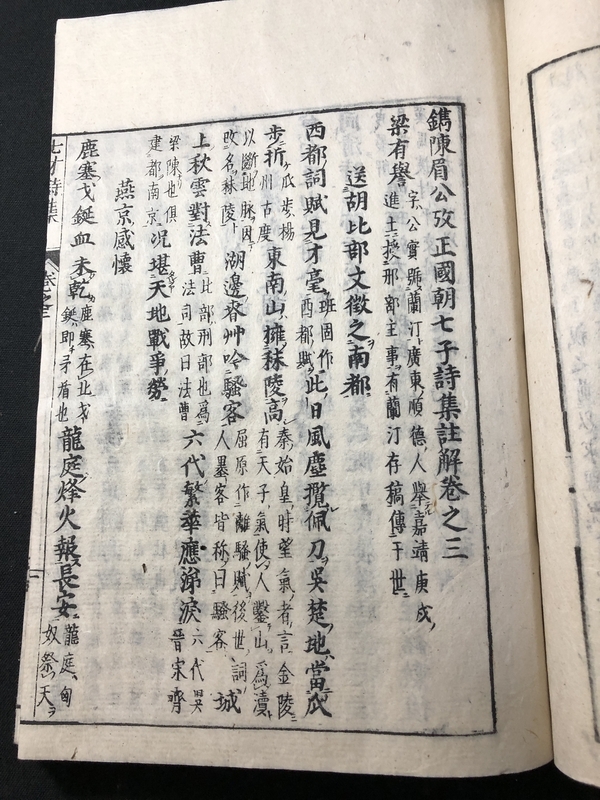 鐫陳眉公攷正國朝七子詩集註解卷之三
梁有譽字公實號蘭汀廣東順德人舉嘉靖庚戌進士授刑部主事有蘭汀存稿傳于世
送胡比部文徵之南都
西都詞賦見才毫班固作西都賦此日風塵攬佩刀吳楚地當瓜
步折瓜步楊州古度東南山擁秣陵高秦始皇時望氣者言金陵有天子氣使人鑿山爲瀆
以斷地脉因改名秣陵湖邊春艸吟騷客屈原作離騷賦後世詞人墨客皆称曰騷客城
上秋雲對法曹比部刑部也爲法司故曰法曹六代繁華應涕淚六代吳晉宋齊
梁陳也俱建都南京况堪天地戰爭勞
燕京感懷
鹿塞戈鋋血未乾鹿塞在北戈鋋即矛盾也龍庭烽火報長安龍庭匈奴祭天
七才詩集 卷之三